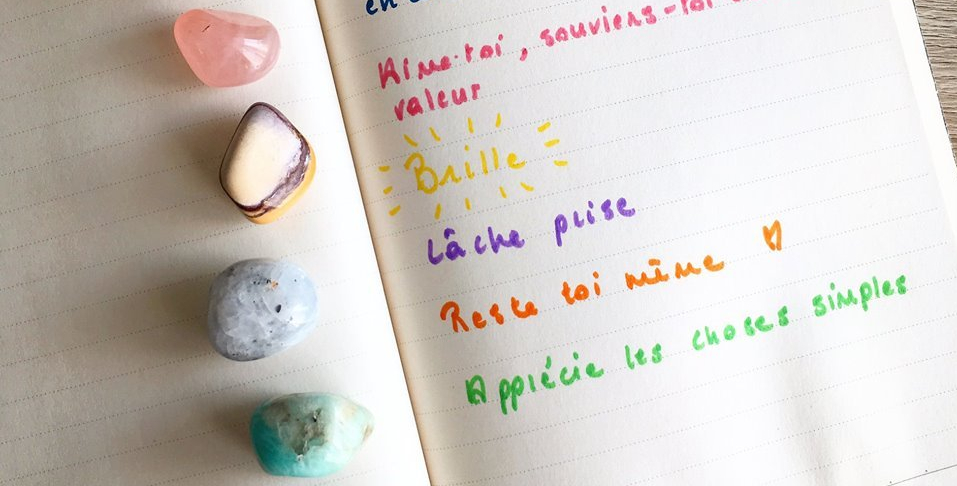 en
Aime-toi, souviens-toi
valeur
Brille
Lâche prise
Reste toi même
Apprécie les choses simples